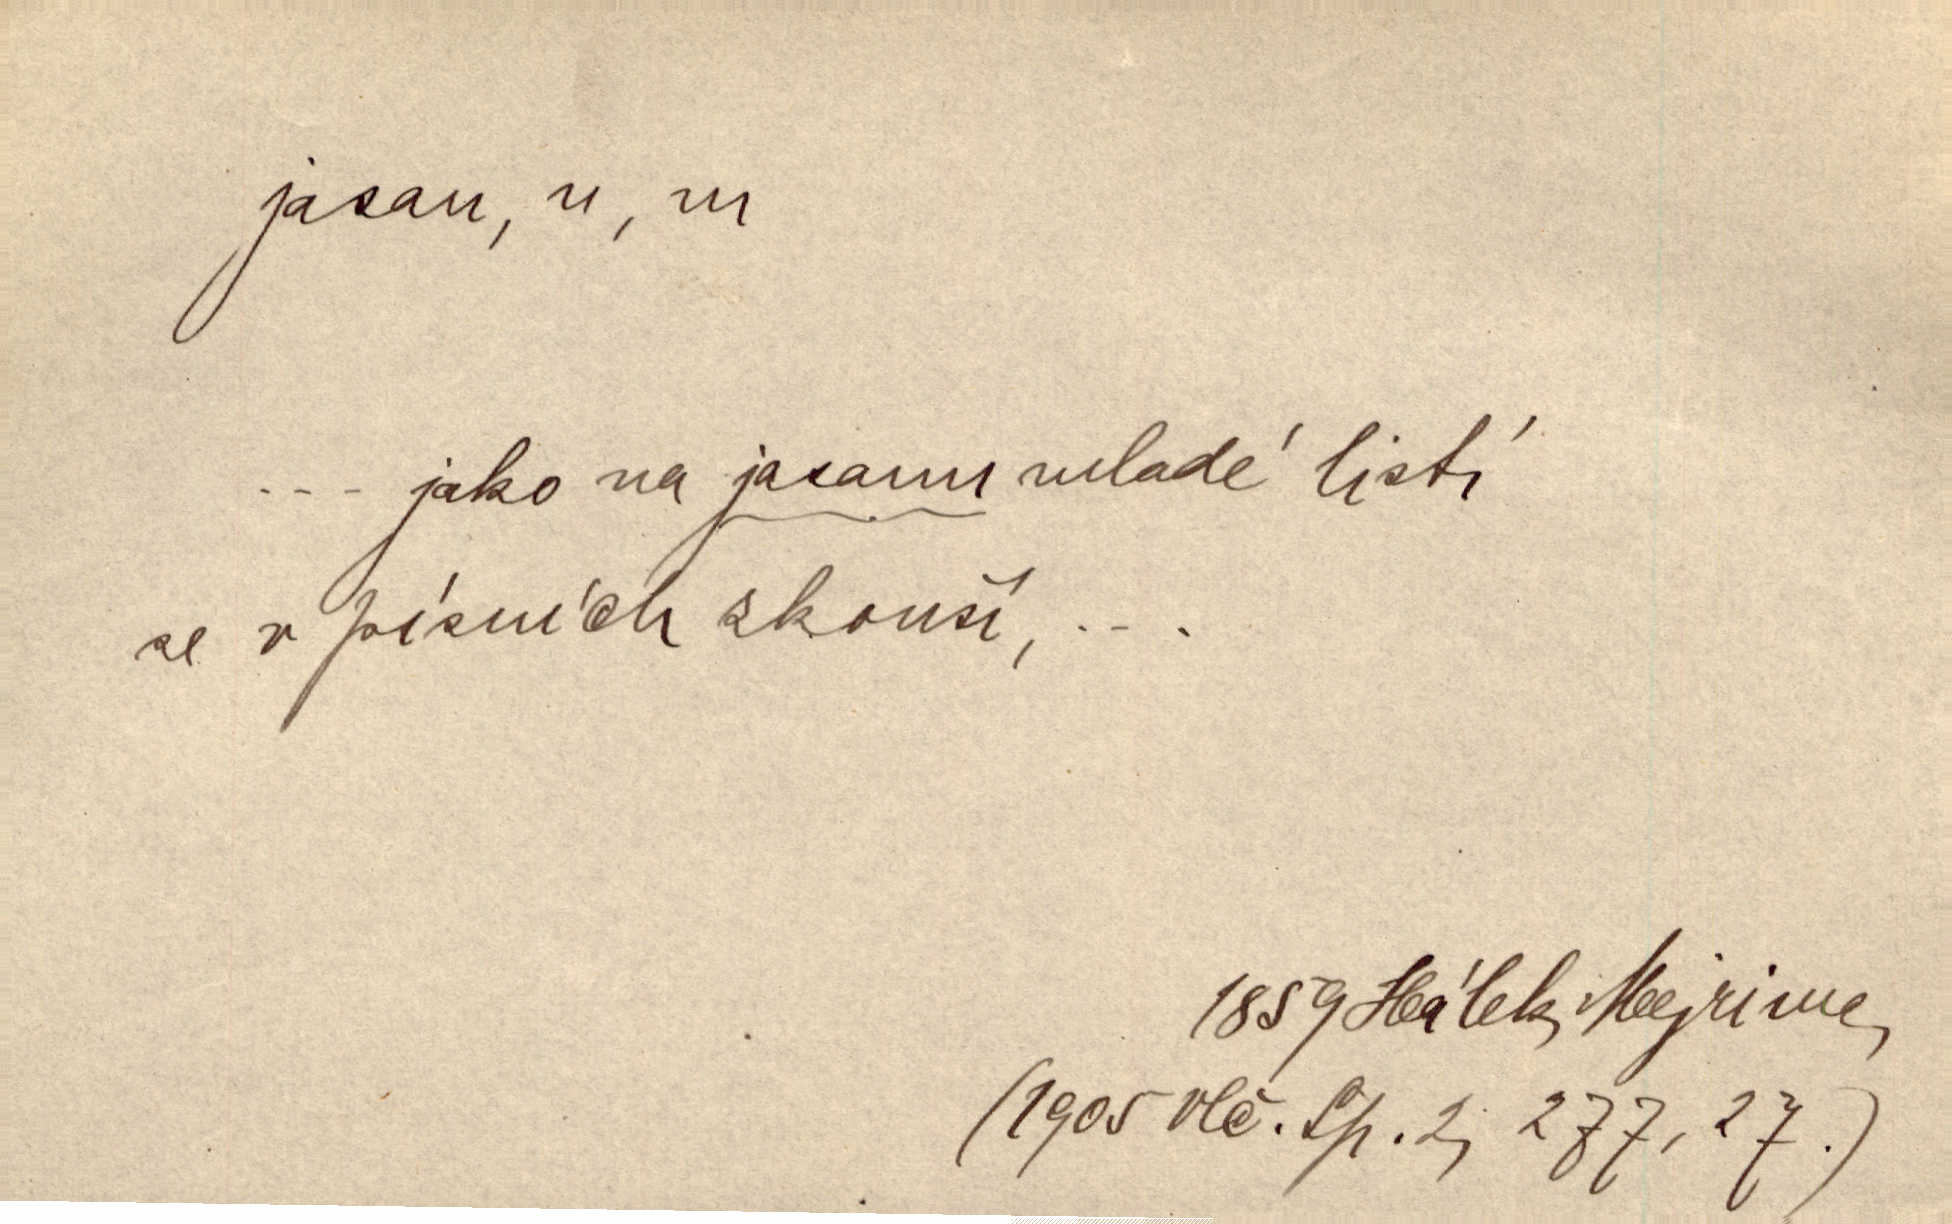 jasan, u, m
--- jako na jasanu mladé listí
se v písních zkouší, ---
1859 Hálek, Mejrima,
(1905 vlč. Sp. 2, 277, 27.)